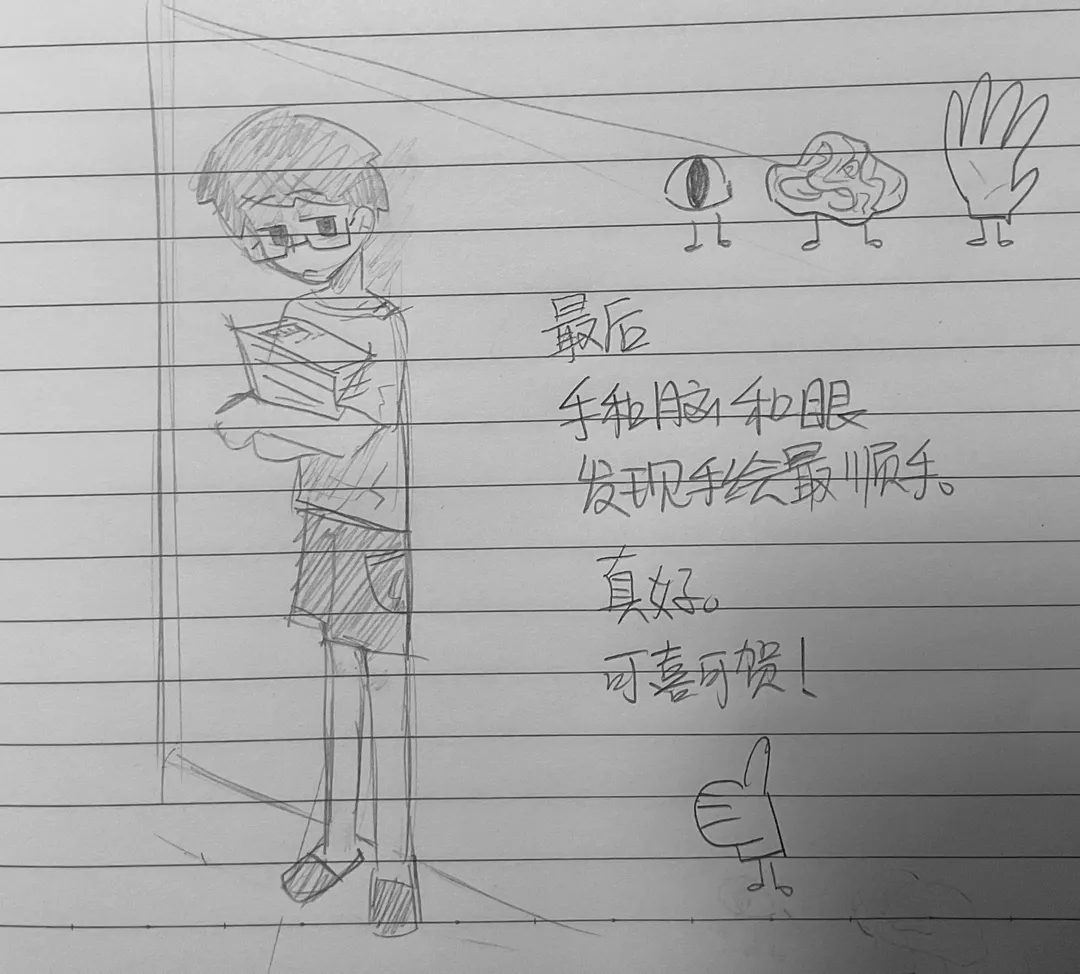 最后
手和脑和眼
发现手绘最顺手。
真好。
可喜可贺！